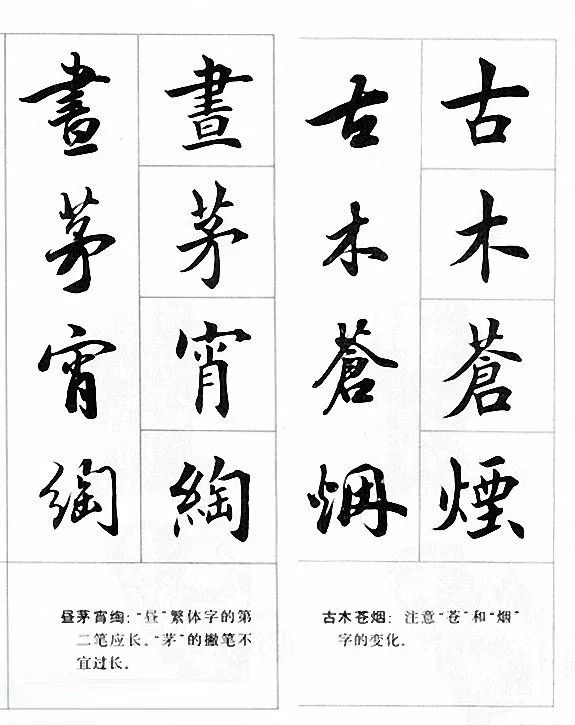 古木蒼煙
古木蒼煙
古木苍烟:注意“苍”和“烟”
字的变化。
晝茅宵綯
晝茅宵綯
昼茅宵绹:“昼”繁体字的第
二笔应长。“茅”的撇笔不
宜过长。